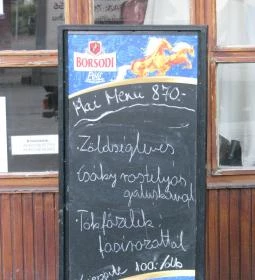 BORSODI
Mai Menü 870.-
- Zöldségleves
- Csáky rostélyos
galuskával
- Tökfőzelék
fasírozottal
100.-